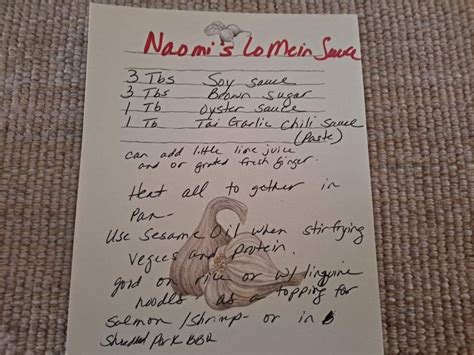 Naomi's Lo Mein Sauce
3 Tbs Soy sauce
3 Tbs Brown Sugar
1 Tb Oyster Sauce
1 Tb Tai Garlic Chili Sauce
(Paste)
can add little lime juice
and or grated fresh ginger.
Heat all to gether in
Pan-
Use Sesame Oil when stirfrying
vegees and protein.
good on rice or w/ linguine
noodles as a topping for
Salmon/shrimp- or in
Shredded Pork BBQ